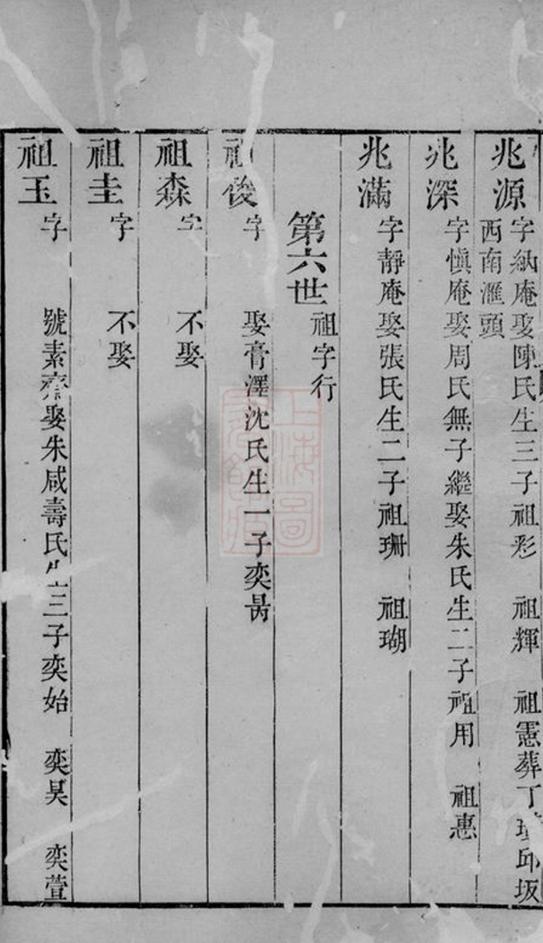 兆源 字紈庵娶陳氏生三子祖彩 祖輝 祖憲葬丁 邱坂
西南滙頭
兆深 字慎庵娶周氏無子繼娶朱氏生二子祖用 祖惠
兆滿 字靜庵娶張氏生二子祖珊 祖瑚
第六世 祖字行
祖俊 字 娶膏澤沈氏生一子奕昺
祖森 字 不娶
祖圭 字 不娶
祖玉 字 號素齋娶朱咸壽氏生三子奕始 奕昊 奕萱